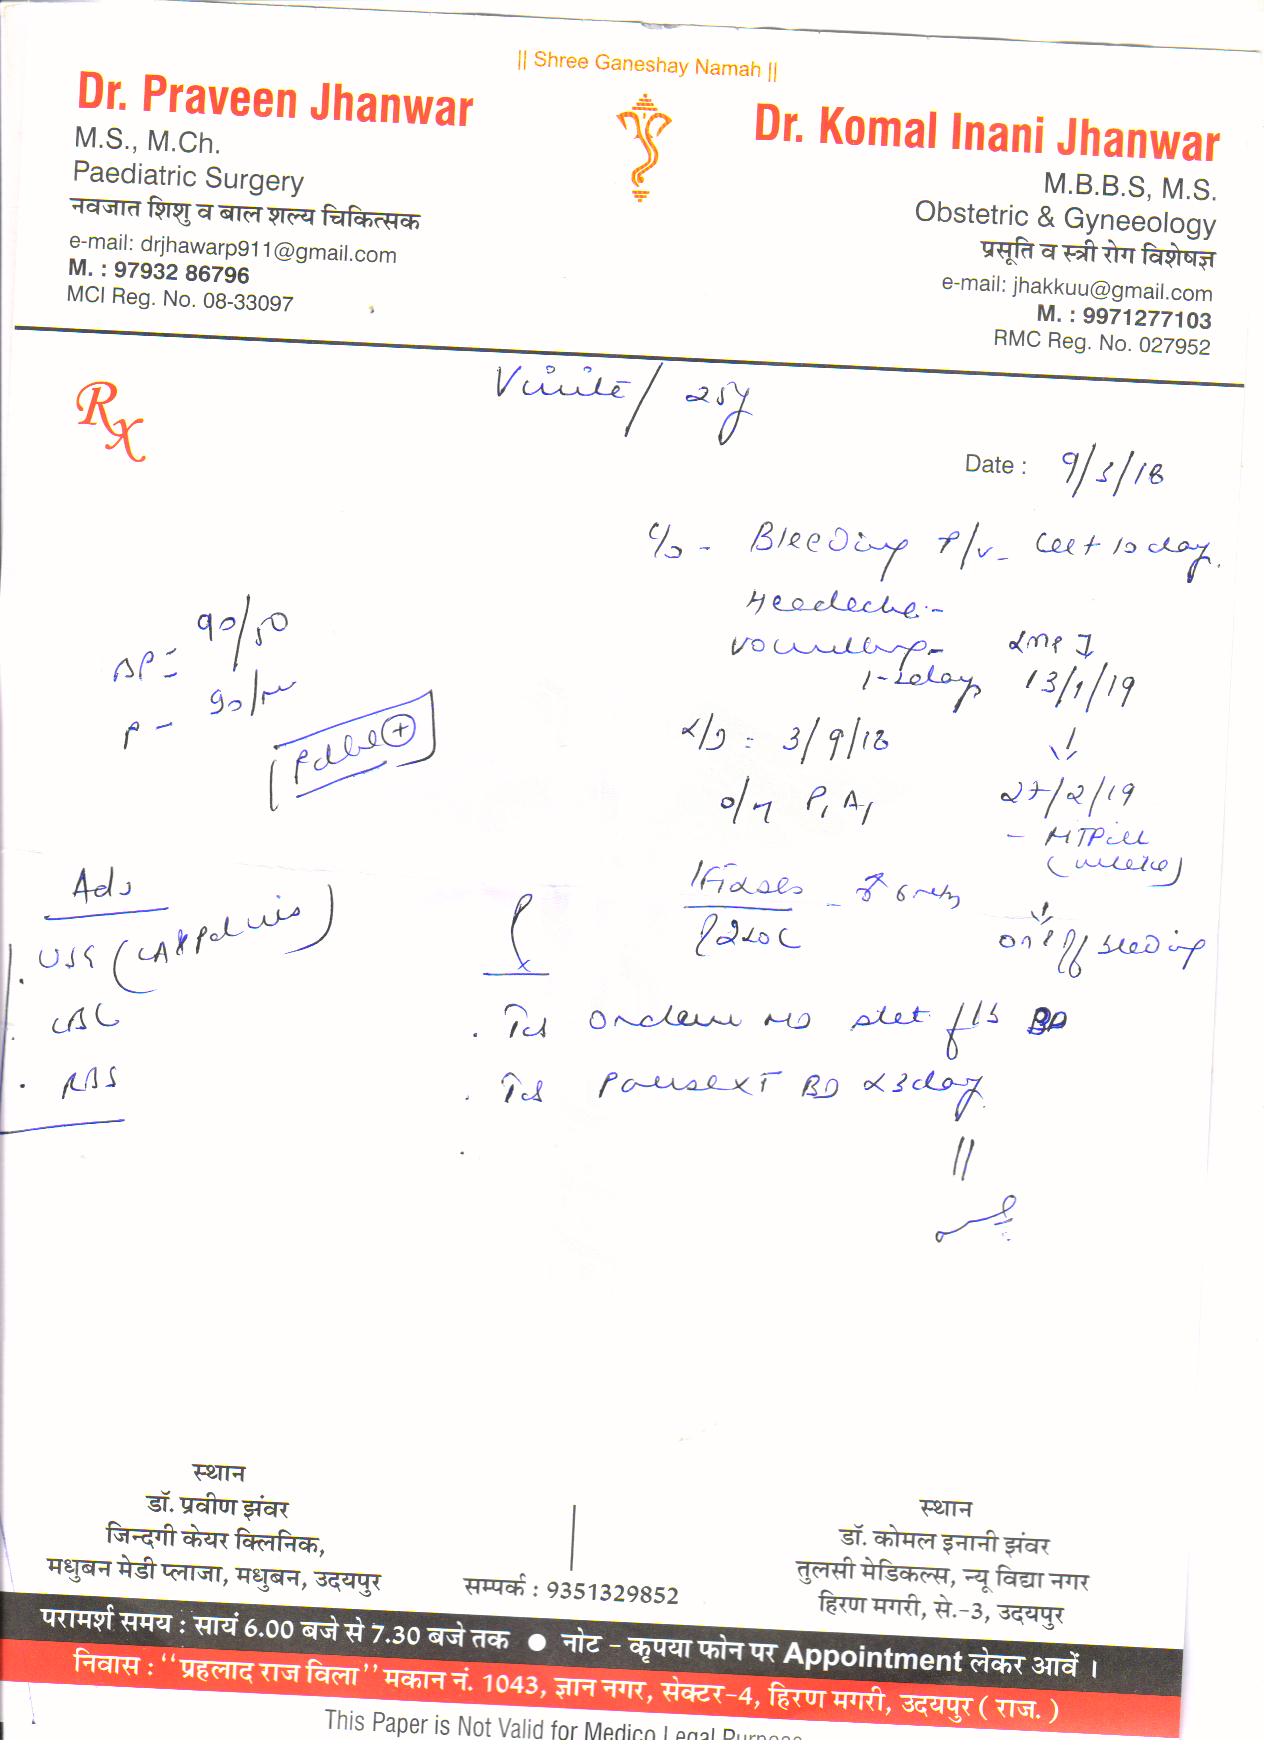 || Shree Ganeshay Namah ||
Dr. Praveen Jhanwar
M.S., M.Ch.
Paediatric Surgery
नवजात शिशु व बाल शल्य चिकित्सक
e-mail: drjhawarp911@gmail.com
M. : 97932 86796
MCI Reg. No. 08-33097
Dr. Komal Inani Jhanwar
M.B.B.S, M.S.
Obstetric & Gyneeology
प्रसूति व स्त्री रोग विशेषज्ञ
e-mail: jhakkuu@gmail.com
M. : 9971277103
RMC Reg. No. 027952
Rx
/ 25y
Date : 9/3/18
c/o - Bleeding P/v - last 10 day.
Headache -
vomiting -
1-2 day
LMP
13/1/19
BP = 90/50
P - 90/
3/9/18
P1 A1
27/2/19
- MTPill
6
on & off bleeding
Adv
USG
CBC
RBS
Rx
. Tab stat BD
. Tab BD x 3 day
स्थान
डॉ. प्रवीण झंवर
जिन्दगी केयर क्लिनिक,
मधुबन मेडी प्लाजा, मधुबन, उदयपुर
सम्पर्क : 9351329852
स्थान
डॉ. कोमल इनानी झंवर
तुलसी मेडिकल्स, न्यू विद्या नगर
हिरण मगरी, से.-3, उदयपुर
परामर्श समय : सायं 6.00 बजे से 7.30 बजे तक ● नोट - कृपया फोन पर Appointment लेकर आवें ।
निवास : ‘‘प्रहलाद राज विला’’ मकान नं. 1043, ज्ञान नगर, सेक्टर-4, हिरण मगरी, उदयपुर ( राज. )
This Paper is Not Valid for Medico Legal Purpose